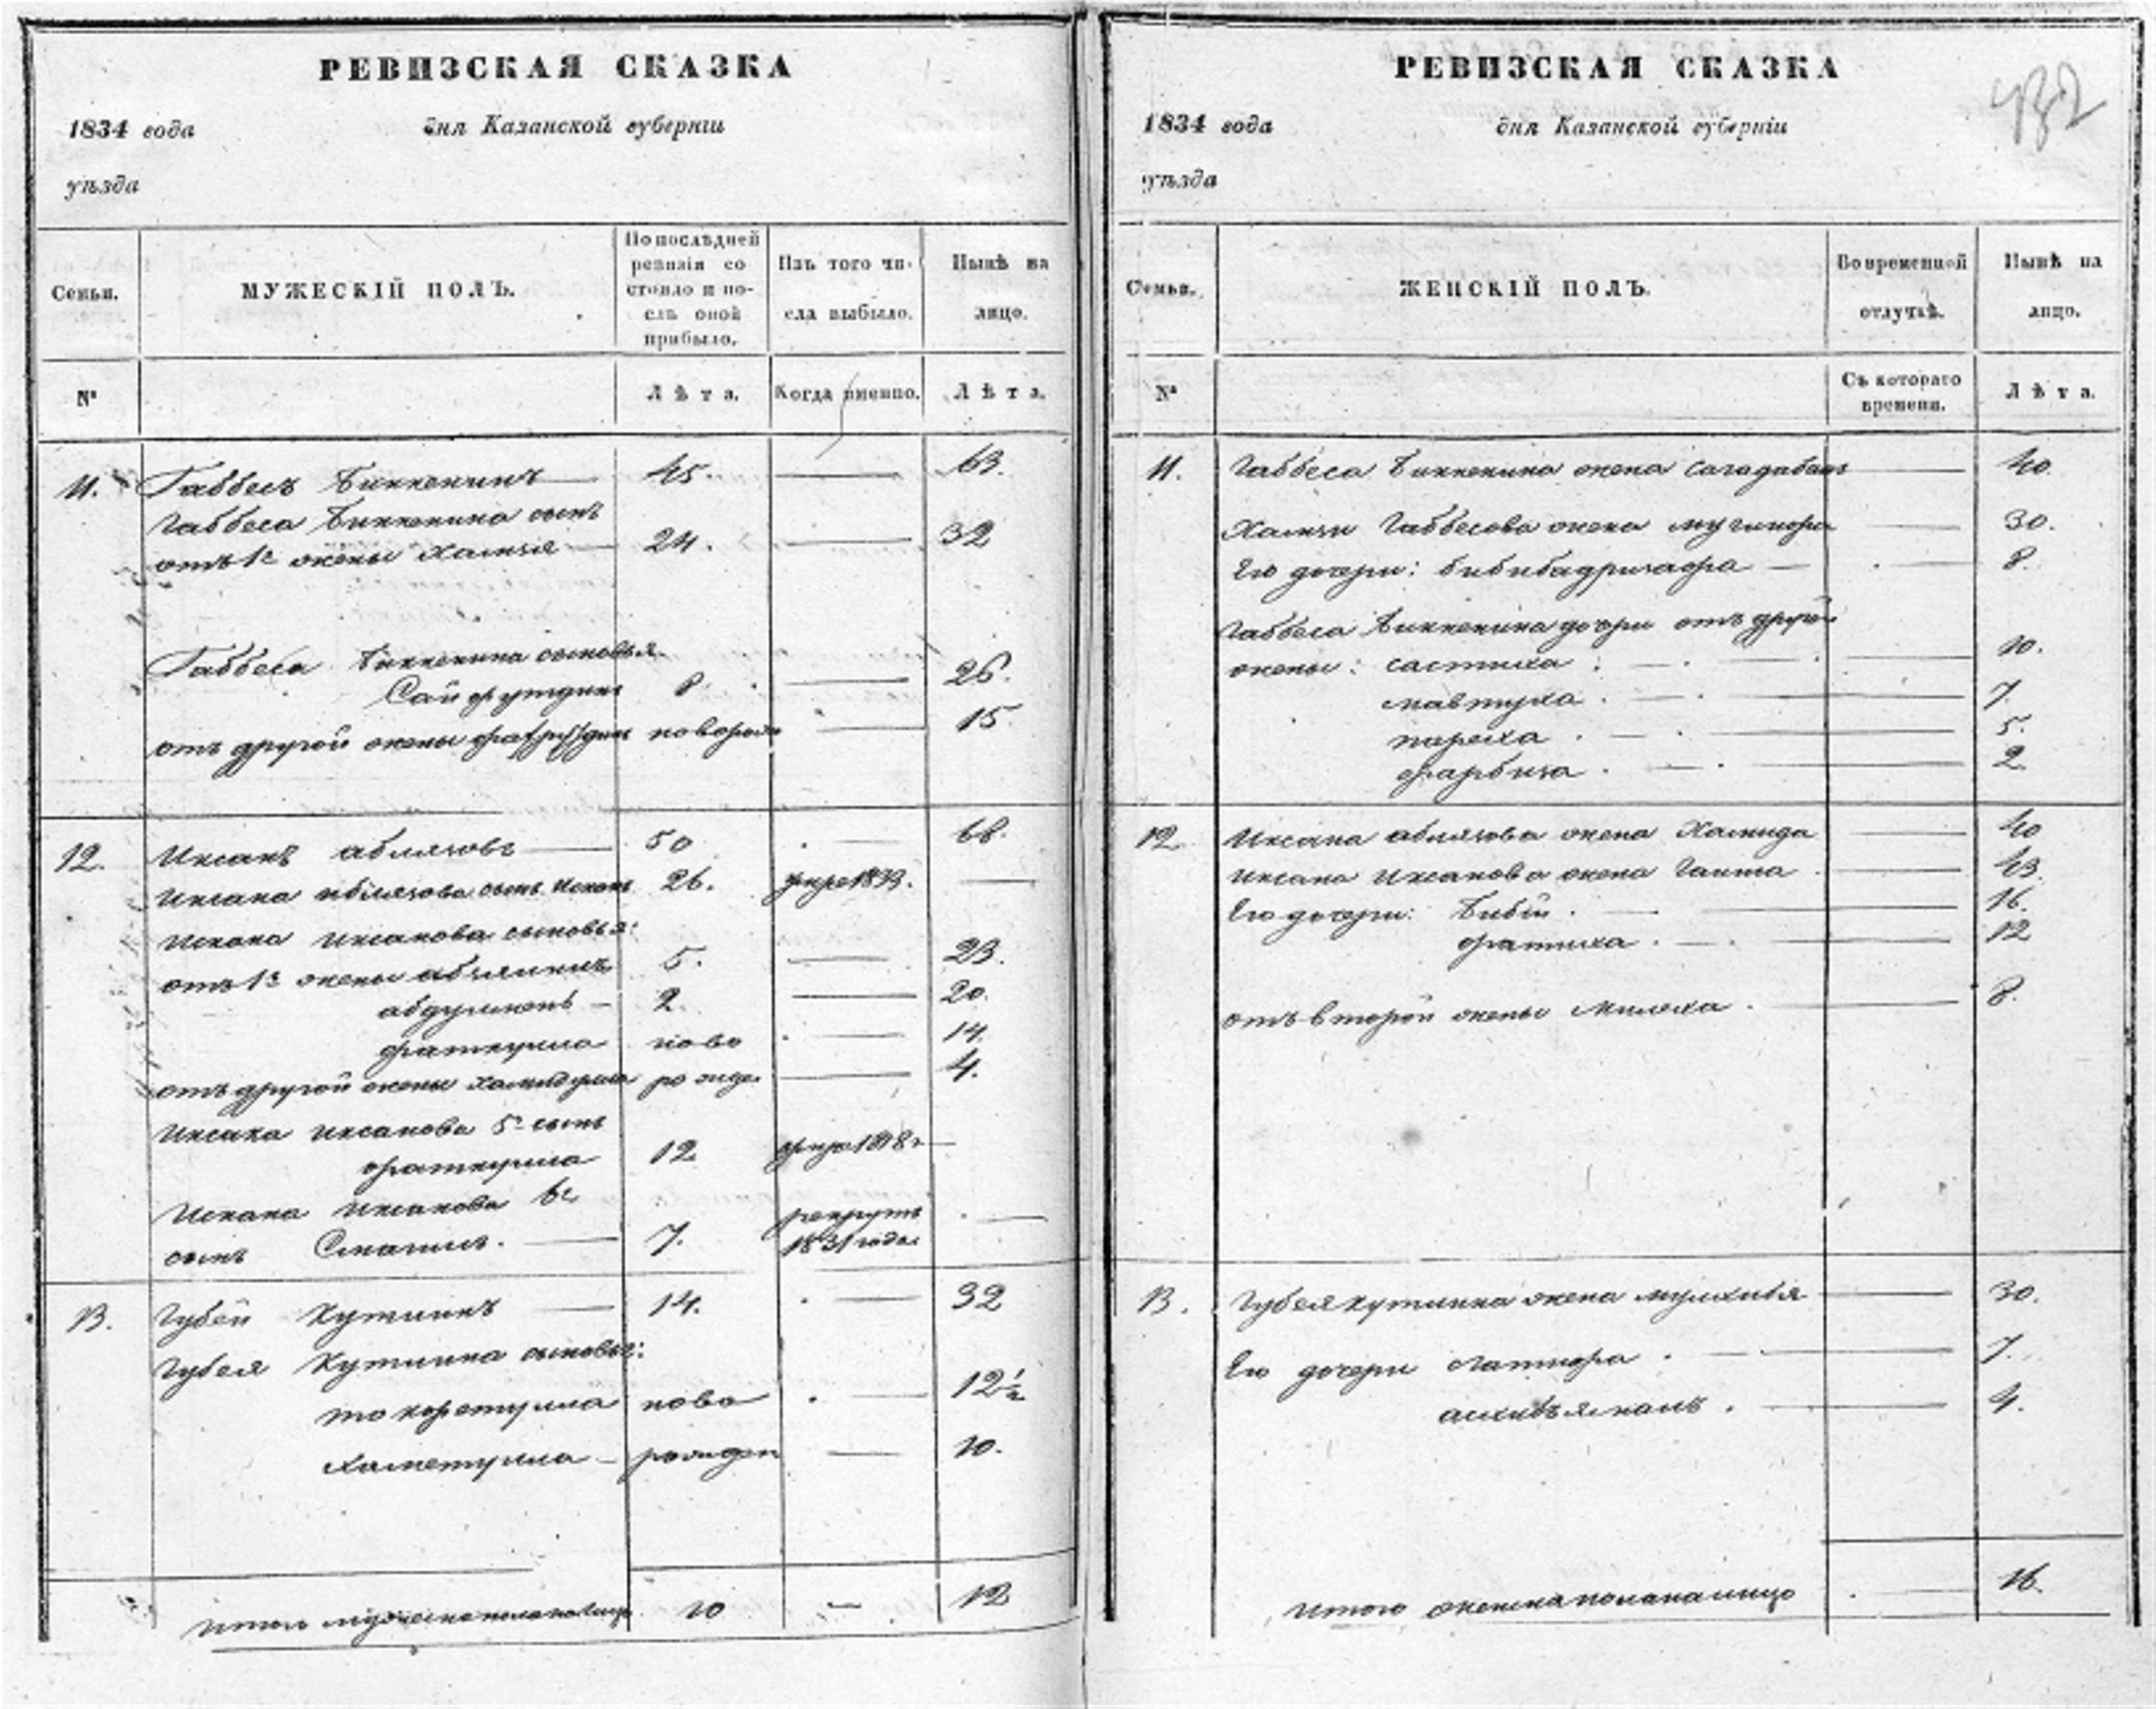 РЕВИЗСКАЯ СКАЗКА
1834 года дня Казанской губерніи
уѣзда
Семьи.
МУЖЕСКІЙ ПОЛЪ.
По послѣдней ревизіи состояло и послѣ оной прибыло.
Изъ того числа выбыло.
Нынѣ на лицо.
№
Лѣта.
Когда именно.
Лѣта.
11. Габбесъ Биккенинъ 45. 63.
Габбеса Биккенина сынъ
отъ 1й жены Хамзя 24. 32
Габбеса Биккенина сыновья
Сайфутдинъ 8. 26.
отъ другой жены новорож 15
12. Иксанъ Аблязовъ 50 68.
Иксана Аблязова сынъ Исканъ 26. умре 1833.
Искана Иксанова сыновья:
отъ 1й жены 5. 23.
2. 20.
фаткулла ново 14.
отъ другой жены хамидулла рожде 4.
Иксана Иксанова 5й сынъ
фаткулла 12 умре 1818г
Искана Иксанова 6й рекрутъ
сынъ Смагилъ. 7. 1831 года
13. Губей Кутлинъ 14. 32
Губея Кутлина сыновья:
ново 12½
хаметулла рожден 10.
Итого мужеска пола на лицо 10 12
РЕВИЗСКАЯ СКАЗКА
432
1834 года дня Казанской губерніи
уѣзда
Семьи.
ЖЕНСКІЙ ПОЛЪ.
Во временной отлучкѣ.
Нынѣ на лицо.
№
Съ котораго времени.
Лѣта.
11. Габбеса Биккенина жена 40.
Хамзи Габбесова жена 30.
Его дочери: бибибадригафра 8.
Габбеса Биккенина дочери отъ другой
жены: састиха 10.
мавтуха 7.
париха 5.
фарбиза 2.
12 Иксана аблязова жена Хамида 40
Иксана Иксанова жена Гаита 43.
Его дочери: Бибіи 16.
фатиха 12
отъ второй жены Милиха 8.
13. Губея Кутлина жена 30.
Его дочери 7.
4.
Итого женска пола на лицо 16.